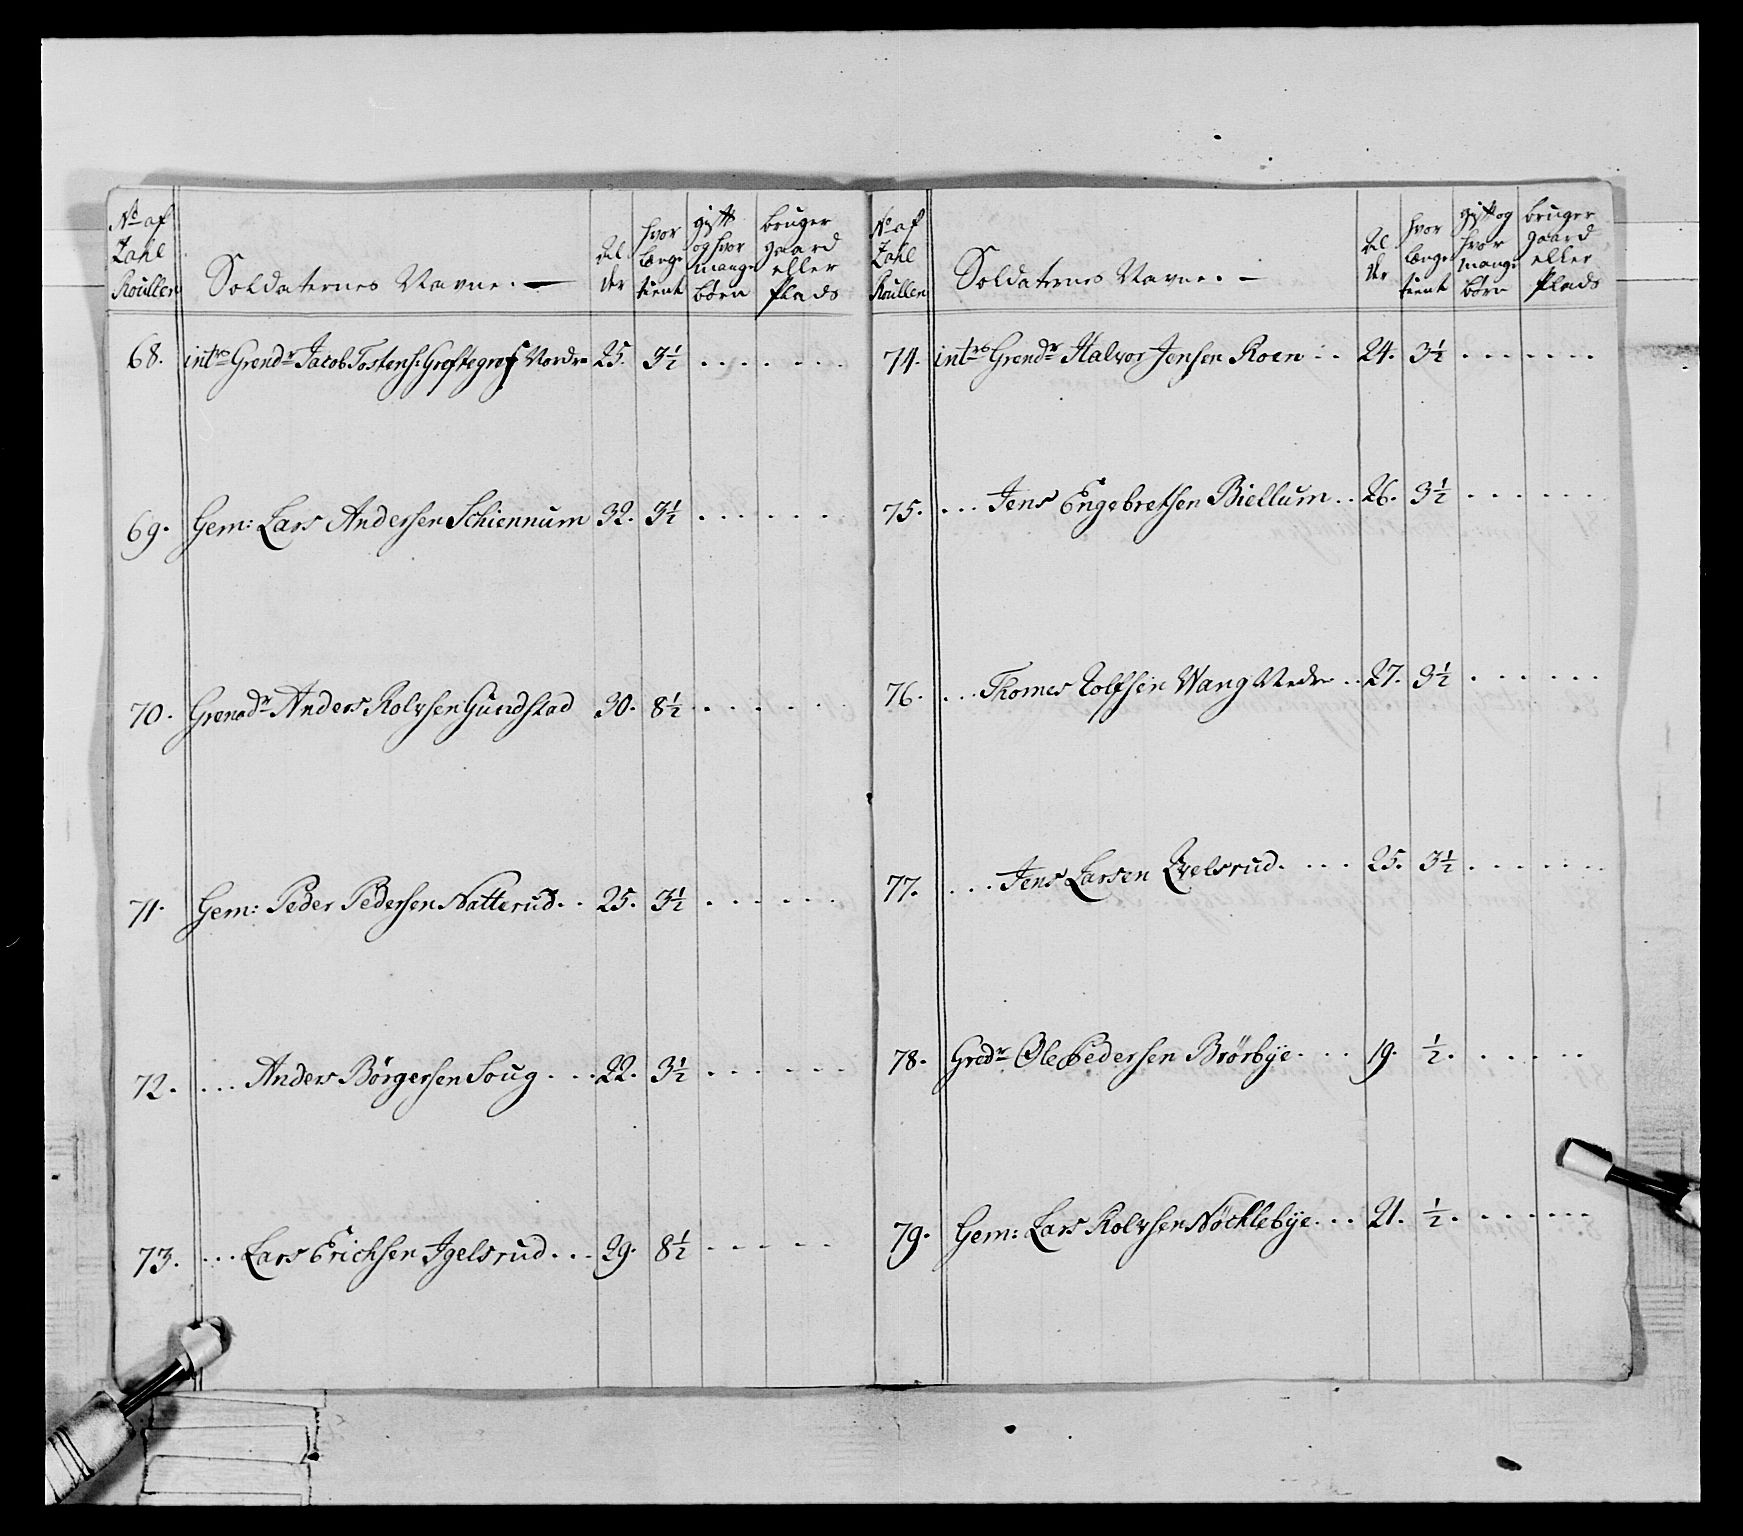 No af Zahl Roullen | Soldaternes Navne. — | Alder | hvor længe tient | gift og hvor mange børn | bruger gaard eller Plads
68. intrs Grendr Jacob Tostens: Grefsegref Nordre 25. 3½ . . . . . .
69. Gem: Lars Andersen Schiennum 32. 3½ . . . . . .
70. Grenadr Anders Rolvsen Gundstad 30. 8½ . . . . . .
71. Gem: Peder Pedersen Natterud . . 25. 3½ . . . . . .
72. . . . Anders Børgersen Soug . . . 22. 3½ . . . . . .
73. . . . Lars Erichsen Igelsrud . . . 29. 8½ . . . . .
No af Zahl Roullen | Soldaternes Navne. — | Alder | hvor længe tient | gift og hvor mange børn | bruger gaard eller Plads
74. intrs Grendr Halvor Jensen Roen . . 24. 3½ . . . . . .
75. . . . Jens Engebretsen Biellum . . 26. 3½ . . . . . .
76. . . . Thomes Rolfsen Wang Nedre . . 27. 3½ . . . . . .
77. . . . Jens Larsen . . . . 25. 3½ . . . . . .
78. Gredr Ole Pedersen Brørbye . . . 19. ½. . . . . .
79. Gem: Lars Rolvsen Nøcklebye . . . 21. ½. . . . . . .